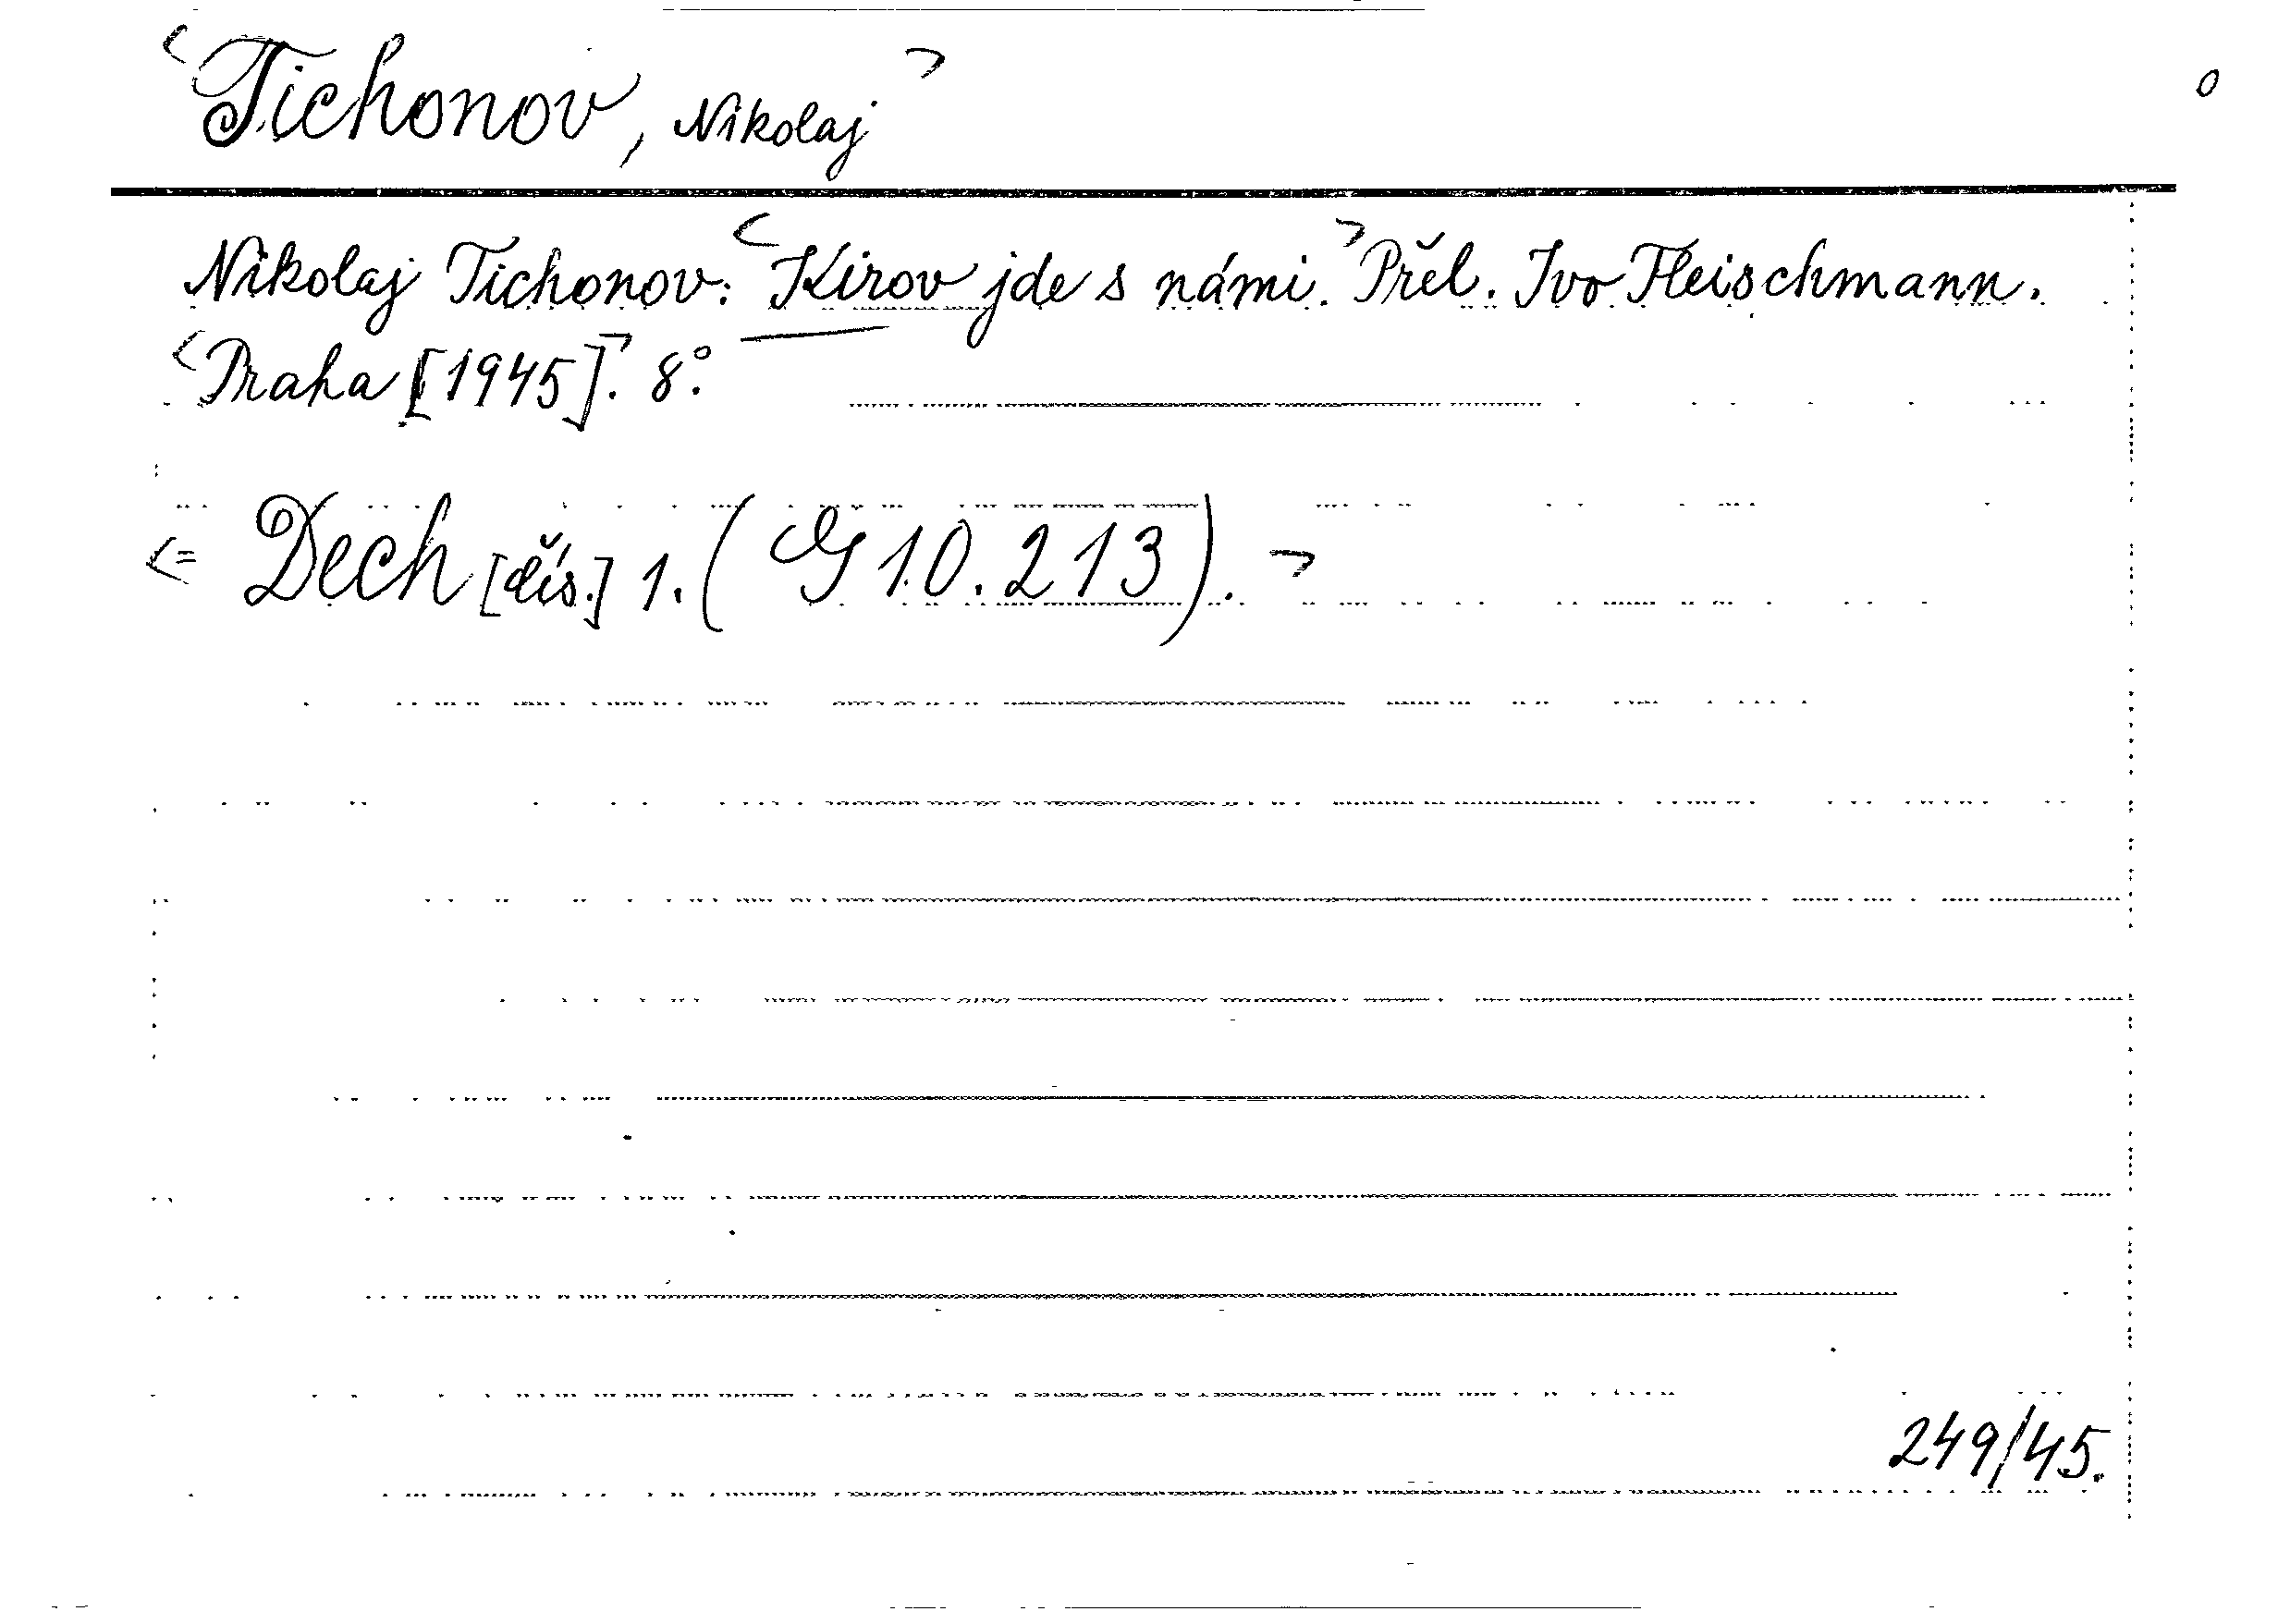 <Tichonov, Nikolaj> 0
Nikolaj Tichonov: <Kirov jde s námi.> Přel. Ivo Fleischmann.
<Praha [1945].> 8°.
<= Dech [čís.] 1. (G 10.213).>
249/45.